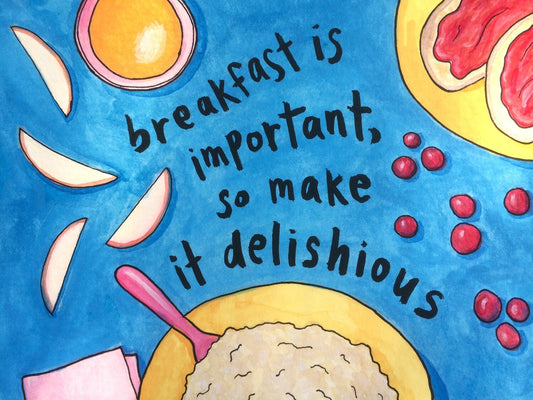 breakfast is
important,
so make
it delishious